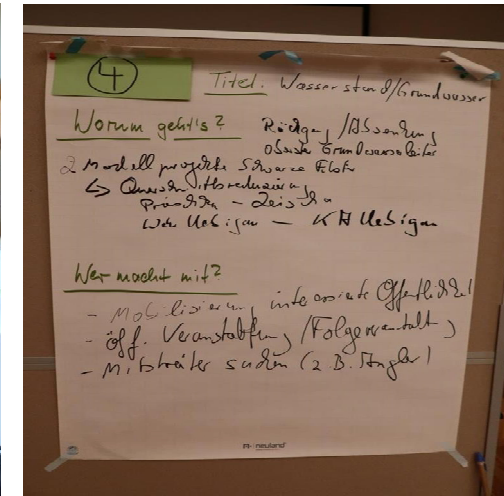 4
Titel: Wasserstand/Grundwasser
Worum geht's?
Rückgang/Absenkung
oberster Grundwasserleiter
2 Modellprojekte Schwarze Elster
↳ Querschnittsreduzierung
- Zeischa
Uebigau - KA Uebigau
Wer macht mit?
- Mobilisierung interessierte Öffentlichkeit
- öff. Veranstaltung/Folgeveranstalt)
- Mitstreiter suchen (z.B. Angler)
neuland